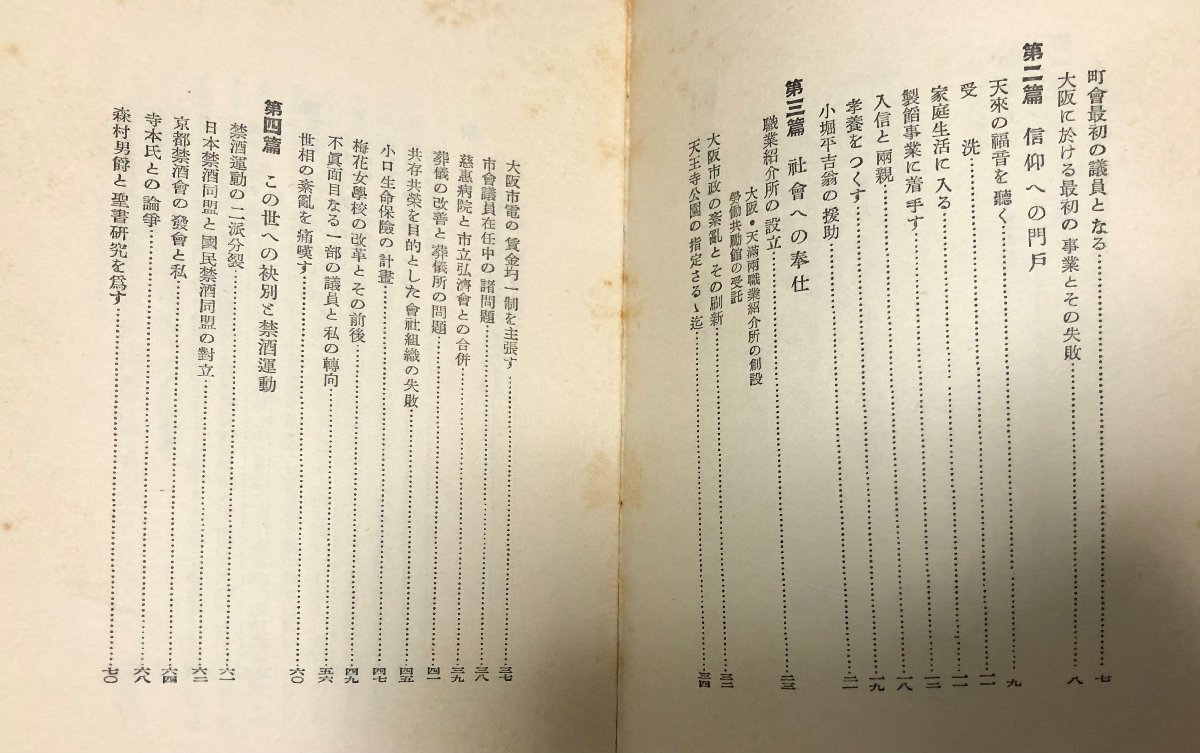 町會最初の議員となる……七
大阪に於ける最初の事業とその失敗……八
第二篇 信仰への門戶
天來の福音を聽く……九
受 洗……一一
家庭生活に入る……一一
製餡事業に着手す……一二
入信と兩親……一八
孝養をつくす……一九
小堀平吉翁の援助……二一
第三篇 社會への奉仕
職業紹介所の設立……二三
大阪・天滿兩職業紹介所の創設
勞働共勵館の受託
大阪市政の紊亂とその刷新……三二
天王寺公園の指定さるゝ迄……三四
大阪市電の賃金均一制を主張す……三七
市會議員在任中の諸問題……三八
慈惠病院と市立弘濟會との合併……三九
葬儀の改善と葬儀所の問題……四一
共存共榮を目的とした會社組織の失敗……四五
小口生命保險の計畫……四七
梅花女學校の改革とその前後……四九
不眞面目なる一部の議員と私の轉向……五六
世相の紊亂を痛嘆す……六〇
第四篇 この世への袂別と禁酒運動
禁酒運動の二派分裂……六一
日本禁酒同盟と國民禁酒同盟の對立……六二
京都禁酒會の發會と私……六四
寺本氏との論爭……六八
森村男爵と聖書研究を爲す……七〇